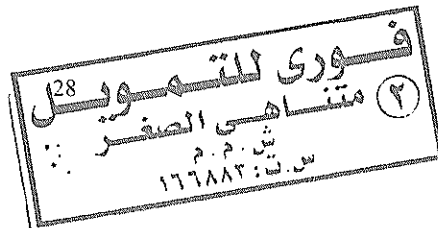 فورى للتمويل
28
متناهى الصغر ٢
ش . م . م
س.ت: ١٦٦٨٨٣